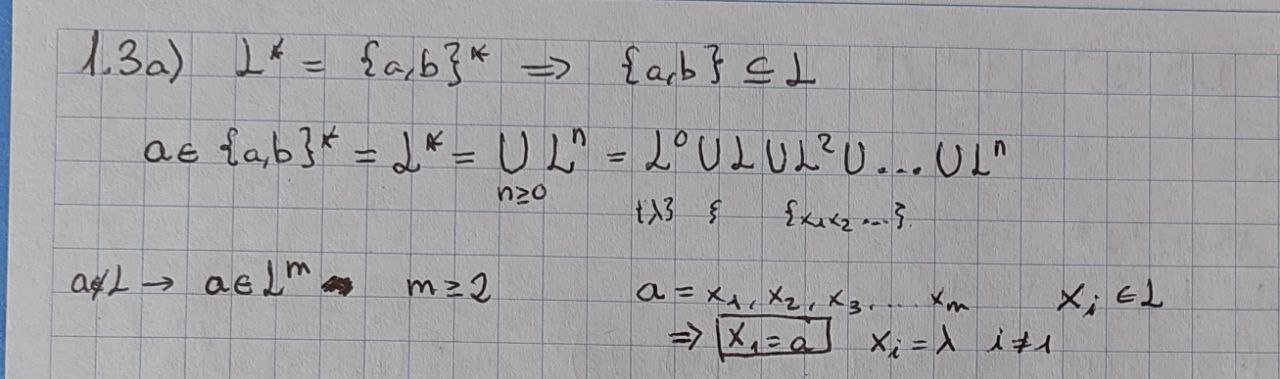 1.3a) L* = {a,b}* ⇒ {a,b} ⊆ L
a ∈ {a,b}* = L* = ⋃ Lⁿ = L⁰ ∪ L ∪ L² ∪ ... ∪ Lⁿ
n≥0 {λ} { {x₁x₂ ...}.
a∉L → a∈Lᵐ m ≥ 2 a = x₁, x₂, x₃, ... xₘ xᵢ ∈ L
⇒ x₁ = a xᵢ = λ i ≠ 1